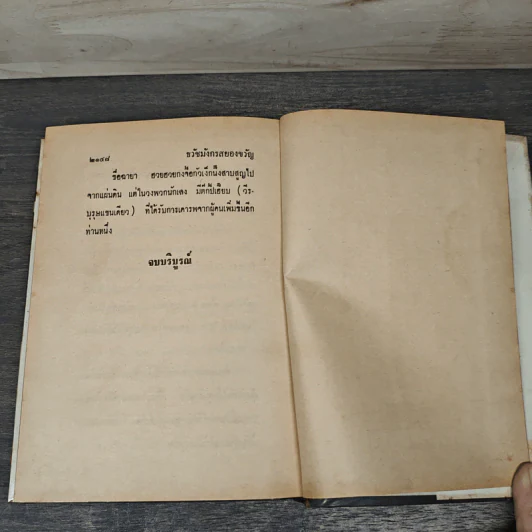 ๒๑๔๘ ธวัชมังกรสยองขวัญ
ชื่อฉายา ฮวยฮวยกงจื้อกัวเง็กนึ้งสาบสูญไป
จากแผ่นดิน แต่ในวงพวกนักเลง มีตึกปี่เฮียบ (วีร-
บุรุษแขนเดียว) ที่ได้รับการเคารพจากผู้คนเพิ่มขึ้นอีก
ท่านหนึ่ง
จบบริบูรณ์